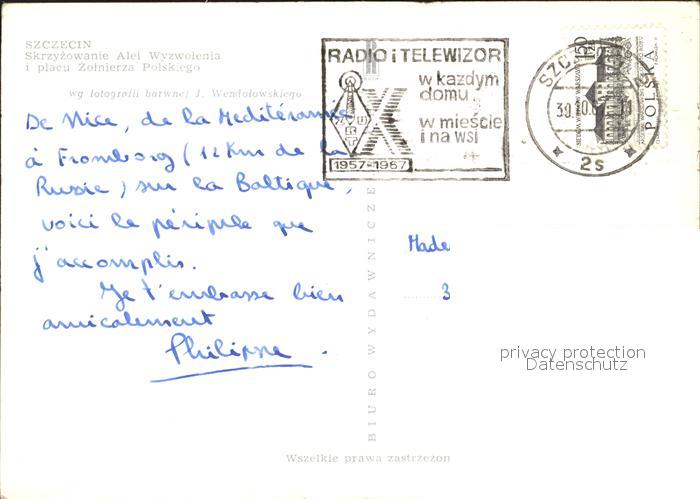 SZCZECIN
Skrzyżowanie Alei Wyzwolenia
i placu Żołnierza Polskiego
wg fotografii barwnej J. Wendołowskiego
De Nice, de la Méditéranée
à Fromborg (12 Km de la
Russie) sur la Baltique,
voici le périple que
j'accomplis.
Je t'embrasse bien
amicalement
Philippe.
RADIO i TELEWIZOR
w każdym
domu
w mieście
i na wsi
1957-1967
2s
POLSKA
Made
3
BIURO WYDAWNICZE
Wszelkie prawa zastrzeżone
privacy protection
Datenschutz